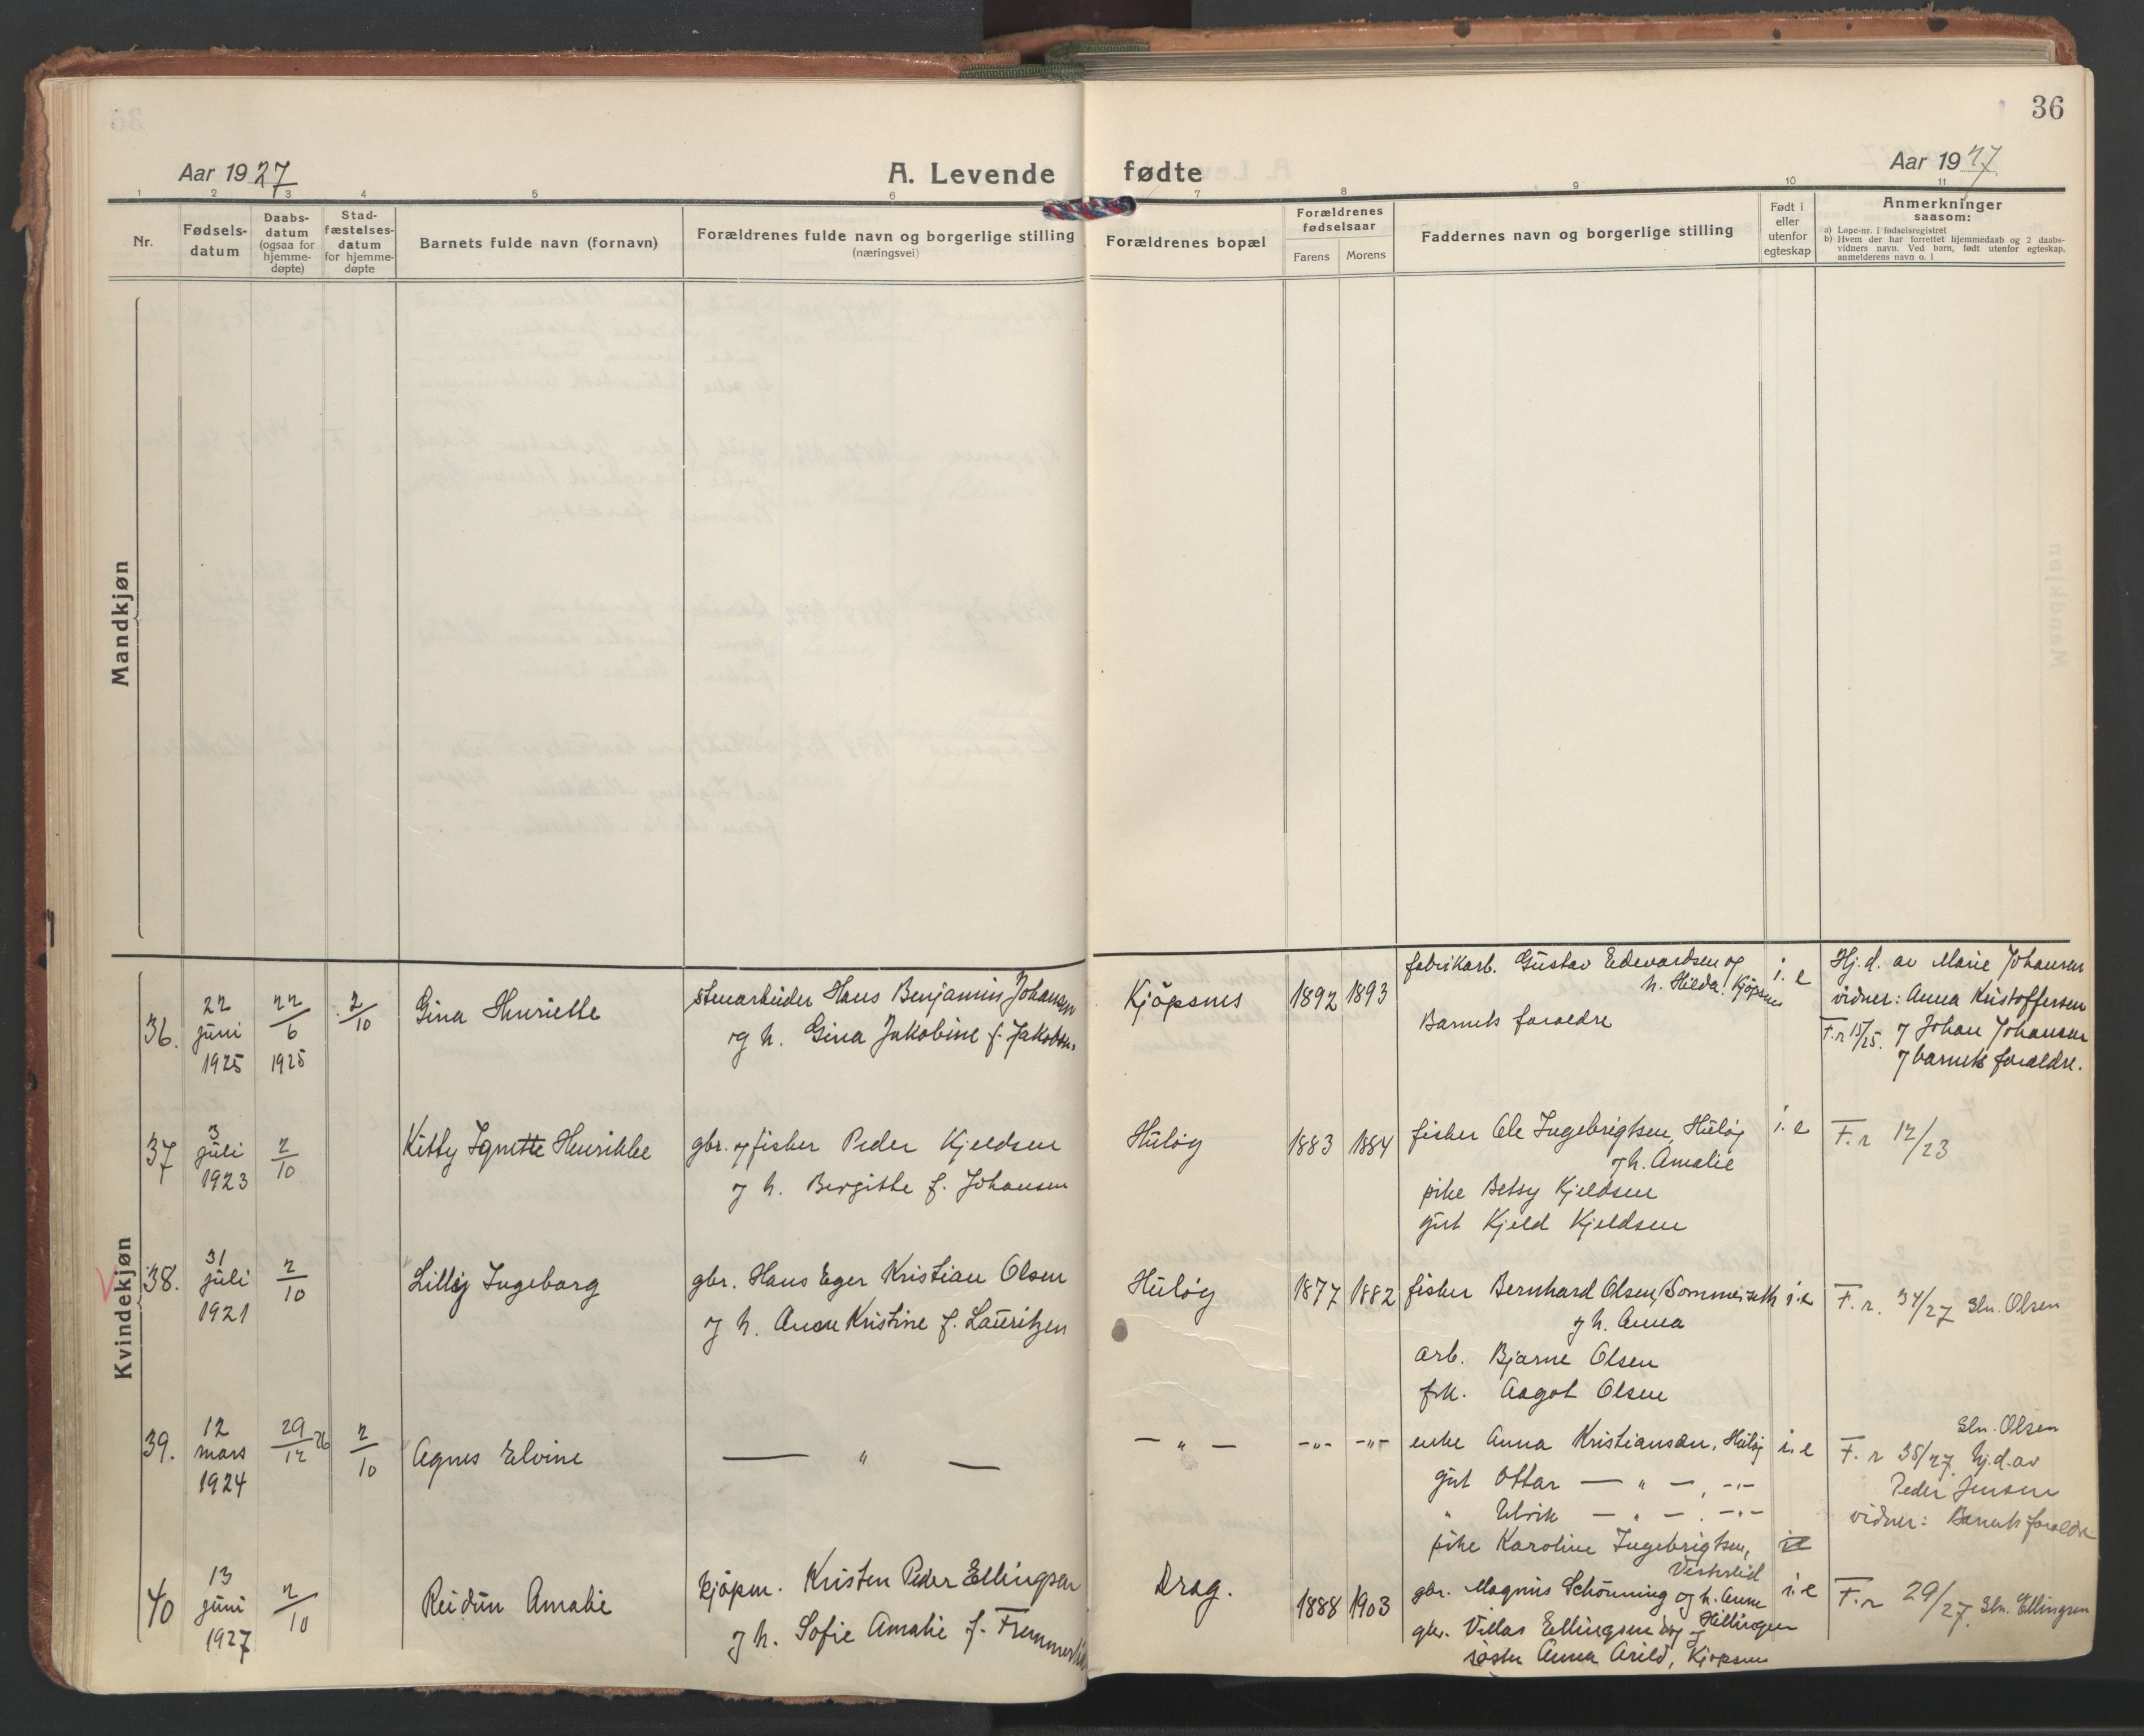 36
Aar 1927
A. Levende fødte
Aar 1927
1 2 3 4 5 6 7 8 9 10 11
Nr.
Fødselsdatum
Daabsdatum (ogsaa for hjemmedøpte)
Stadfæstelsesdatum for hjemmedøpte
Barnets fulde navn (fornavn)
Forældrenes fulde navn og borgerlige stilling (næringsvei)
Forældrenes bopæl
Forældrenes fødselsaar
Farens Morens
Faddernes navn og borgerlige stilling
Født i eller utenfor egteskap
Anmerkninger saasom:
a) Løpe-nr. i fødselsregistret
b) Hvem der har forrettet hjemmedaab og 2 daabsvidners navn. Ved barn, født utenfor egteskap, anmelderens navn o. l
Mandkjøn
Kvindekjøn
36.
22 juni 1925
22/6 1925
2/10
Gina Henriette
stenarbeider Hans Benjamin Johansen
og h. Gina Jakobine f. Jakobsen
Kjöpsnes
1892 1893
fabrikarb. Gustav Edevardsen og
h. Hilda, Kjöpsnes
Barnets foreldre
i. e
Hj.d. av Marie Johansen
vidner: Anna Kristoffersen
F.r 15/25. og Johan Johansen
og barnets foreldre.
37
3 juli 1923
2/10
Kitty Henrikke
gbr. og fisker Peder Kjeldsen
og h. Bergitte f. Johansen
Huløy
1883 1884
fisker Ole Ingebrigtsen, Huløy
og h. Amalie
pike Betsy Kjeldsen
gut Kjeld Kjeldsen
i. e
F. r 12/23
38.
31 juli 1921
2/10
Lilly Ingeborg
gbr. Hans Eger Kristian Olsen
og h. Anne Kristine f. Lauritzen
Huløy
1877 1882
fisker Bernhard Olsen, Sommerseth
og h. Anna
arb. Bjarne Olsen
frk. Aagot Olsen
i. e
F. r. 34/27 Sln. Olsen
39.
12 mars 1924
29/12 26
2/10
Agnes Elvine
— " —
— " —
-"- -"-
enke Anna Kristiansen, Huløy
gut Ottar — " —, -"-
" Ulrik — " —, -"-
pike Karoline Ingebrigtsen,
Vesterlid
i. e
i.e
Sln. Olsen
F. r 35/27. Hj.d.av
Peder Jensen
vidner: Barnets foreldre
40
13 juni 1927
2/10
Reidun Amalie
kjöpm. Kristen Peder Ellingsen
og h. Sofie Amalie f.
Drag.
1888 1903
gbr. Magnus Schönning og h. Anne
gbr. Villas Ellingsen
søster Anna Arild, Kjöpsnes
i. e
F. r 29/27. Sln. Ellingsen